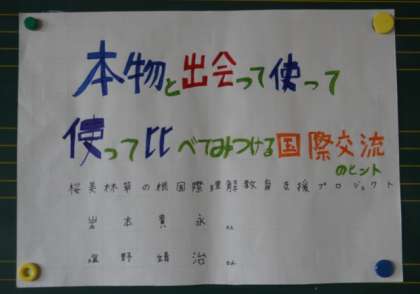 本物と出会って使って
使って比べてみつける国際交流
のヒント
桜美林草の根国際理解教育支援プロジェクト
岩本貴永さん
塩野靖治さん